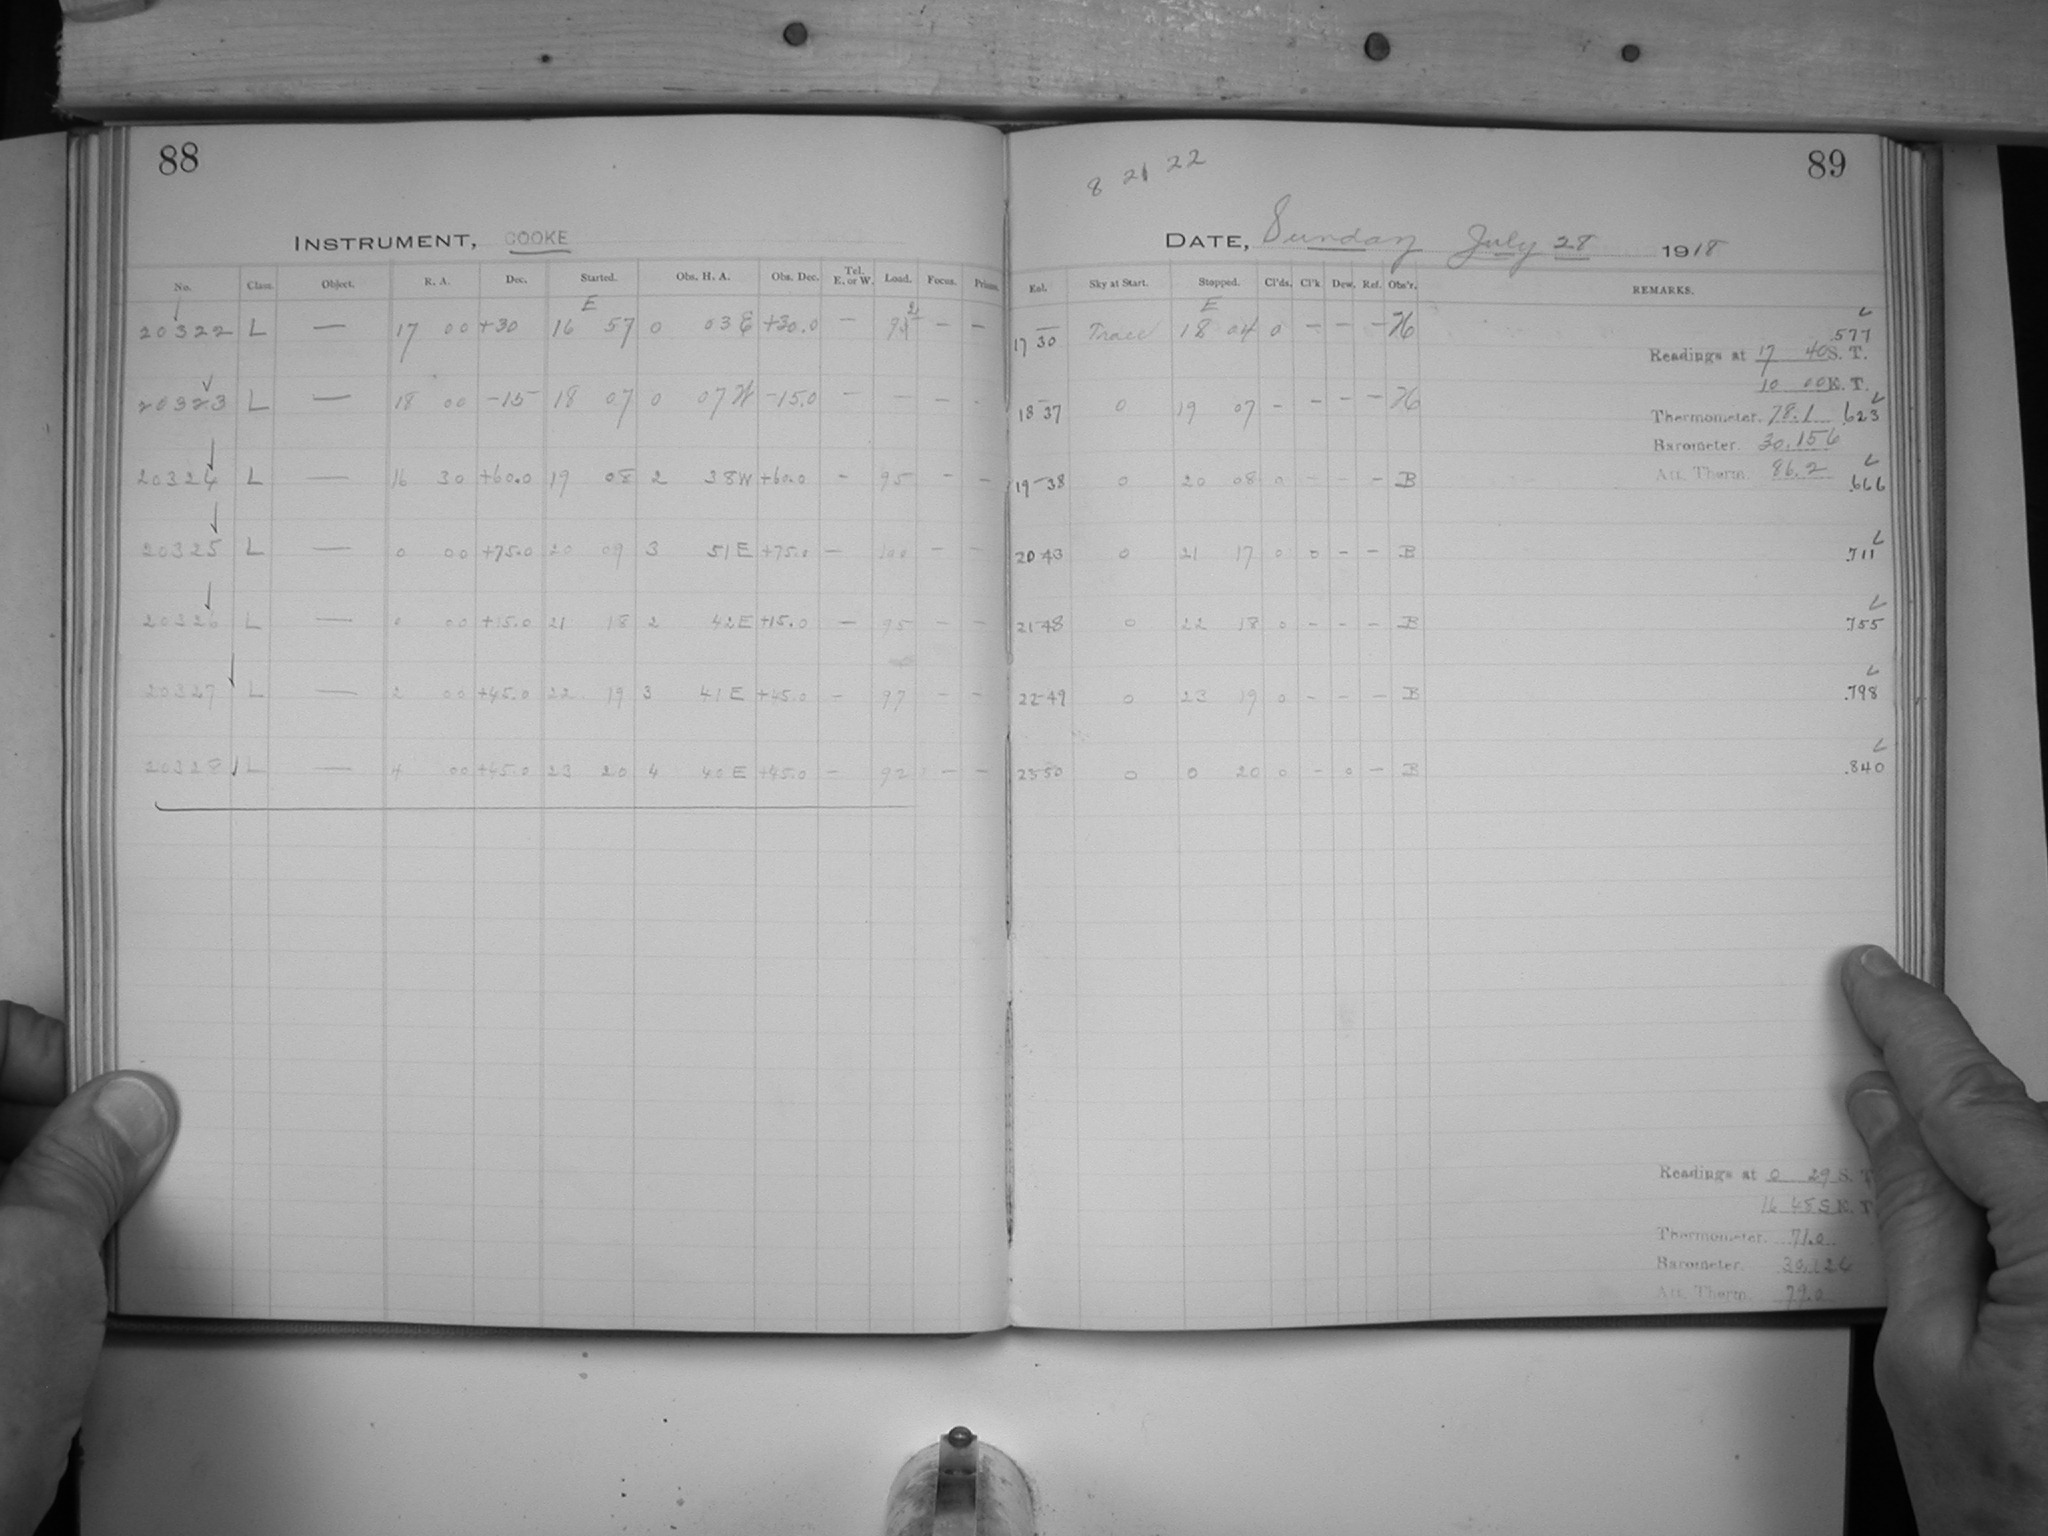 88
INSTRUMENT, COOKE
No. Class. Object. R. A. Dec. Started. Obs. H. A. Obs. Dec. Tel. E. or W. Load. Focus. Prisms.
E
20322 L — 17 00 +30 16 57 0 03 E +30.0 — — —
20323 L — 18 00 -15 18 07 0 07 W -15.0 — — — —
20324 L — 16 30 +60.0 19 08 2 38 W +60.0 — 95 — —
20325 L — 0 00 +75.0 20 09 3 51 E +75.0 — 100 — —
20326 L — 0 00 +15.0 21 18 2 42 E +15.0 — 95 — —
20327 L — 2 00 +45.0 22 19 3 41 E +45.0 — 97 — —
20328 L — 4 00 +45.0 23 20 4 40 E +45.0 — 92 — —
89
8 21 22
DATE, Sunday July 28 1918
Eal. Sky at Start. Stopped. Cl'ds. Cl'k Dew. Ref. Obs'r. REMARKS.
E
17 30 Trace 18 04 0 — — — H .577
Readings at 17 40 S. T.
10 00 E. T.
18-37 0 19 07 — — — — H
Thermometer. 78.1 .623
Barometer. 30.156
Att. Therm. 86.2
19-38 0 20 08 0 — — — B .666
20 43 0 21 17 0 0 — — B .711
21-48 0 22 18 0 — — — B .755
22-49 0 23 19 0 — — — B .798
23-50 0 0 20 0 — 0 — B .840
Readings at 0 29 S. T.
16 45 E. T.
Thermometer. 71.0
Barometer. 30.124
Att. Therm. 79.0